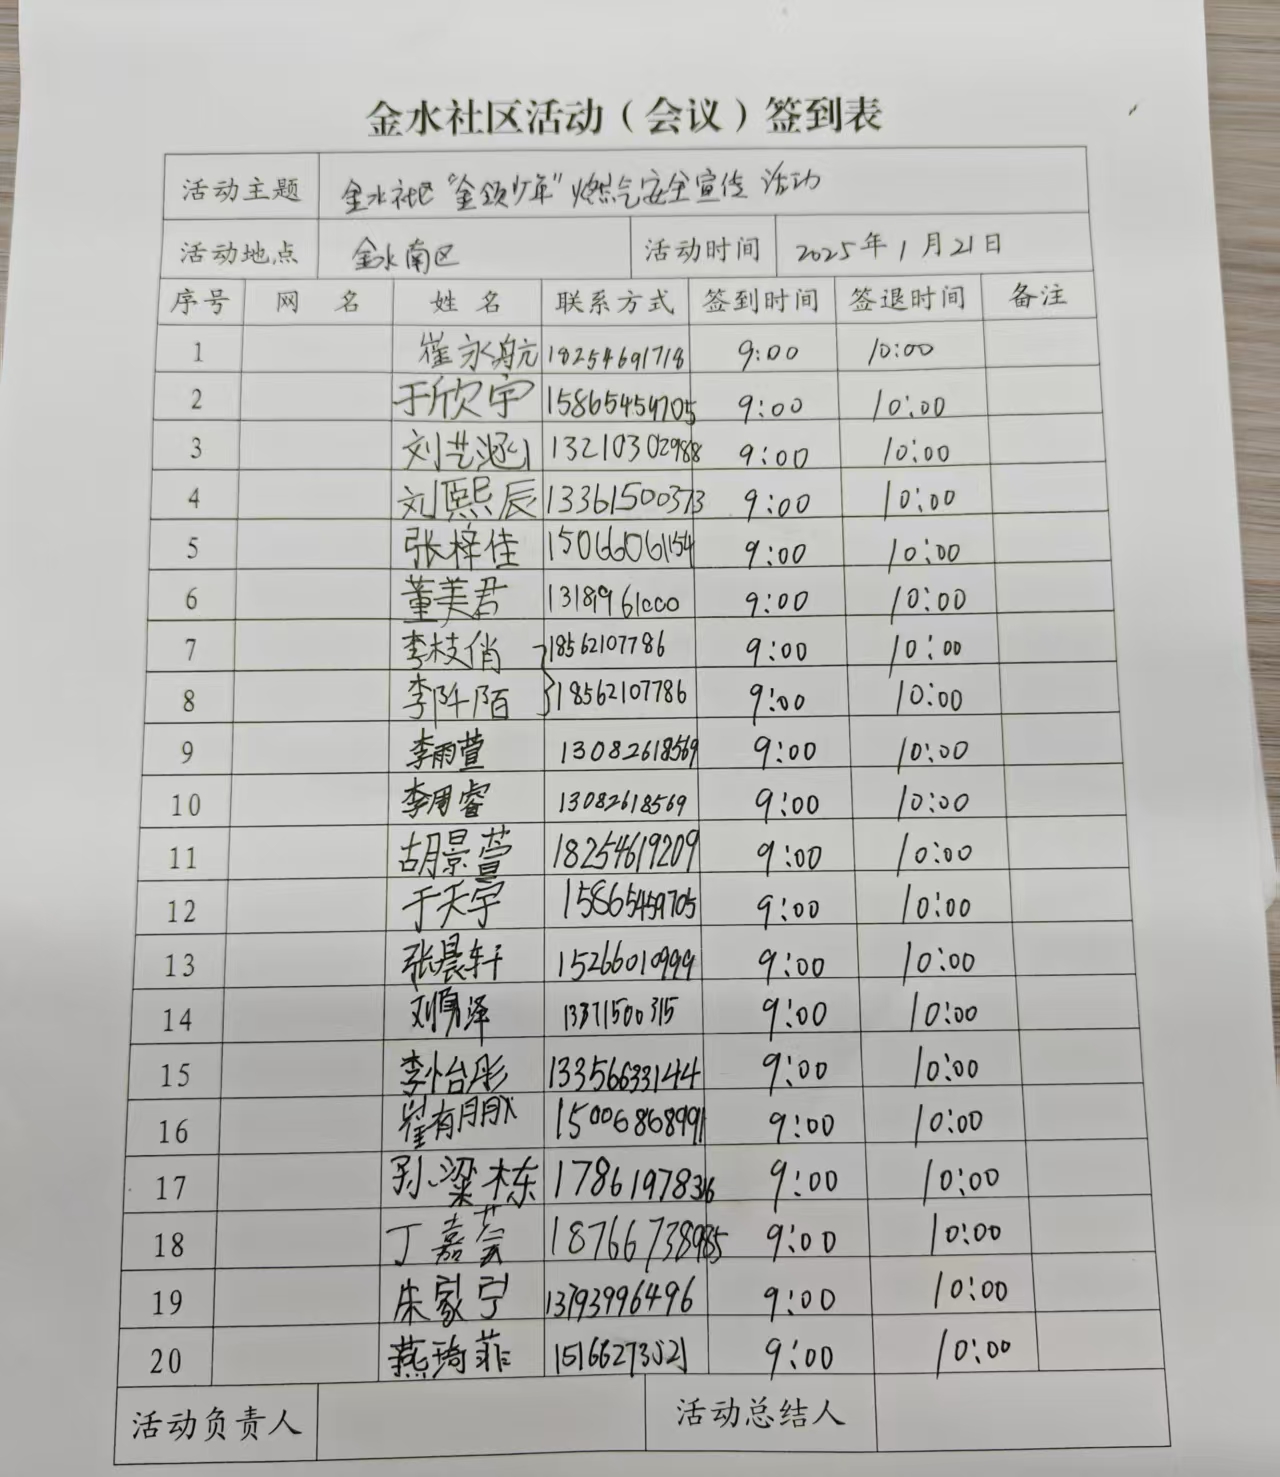 金水社区活动（会议）签到表
活动主题 金水社区“金领少年”燃气安全宣传活动
活动地点 金水南区 活动时间 2025年1月21日
序号 网 名 姓 名 联系方式 签到时间 签退时间 备注
1 崔永航 18254691718 9:00 10:00
2 于欣宇 15865459705 9:00 10:00
3 刘艺涵 13210302988 9:00 10:00
4 刘熙辰 13361500373 9:00 10:00
5 张梓佳 15066061154 9:00 10:00
6 董美君 13189961000 9:00 10:00
7 李枝俏 18562107786 9:00 10:00
8 李阡陌 18562107786 9:00 10:00
9 李雨萱 13082618569 9:00 10:00
10 李周睿 13082618569 9:00 10:00
11 胡景萱 18254619209 9:00 10:00
12 于天宇 15865459705 9:00 10:00
13 张晨轩 15266010999 9:00 10:00
14 13371500315 9:00 10:00
15 李怡彤 13356633144 9:00 10:00
16 15006868991 9:00 10:00
17 孙梁栋 17861978316 9:00 10:00
18 丁嘉芸 18766738985 9:00 10:00
19 朱家宁 13793996496 9:00 10:00
20 燕琦菲 9:00 10:00
活动负责人 活动总结人